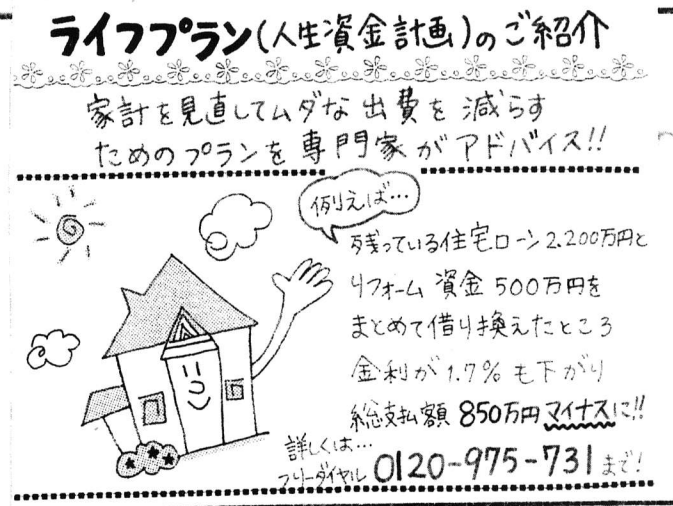 ライフプラン(人生資金計画)のご紹介
家計を見直してムダな出費を減らす
ためのプランを専門家がアドバイス!!
例えば…
残っている住宅ローン2.200万円と
リフォーム資金500万円を
まとめて借り換えたところ
金利が1.7%も下がり
総支払額850万円マイナスに!!
詳しくは…
フリーダイヤル 0120-975-731まで!